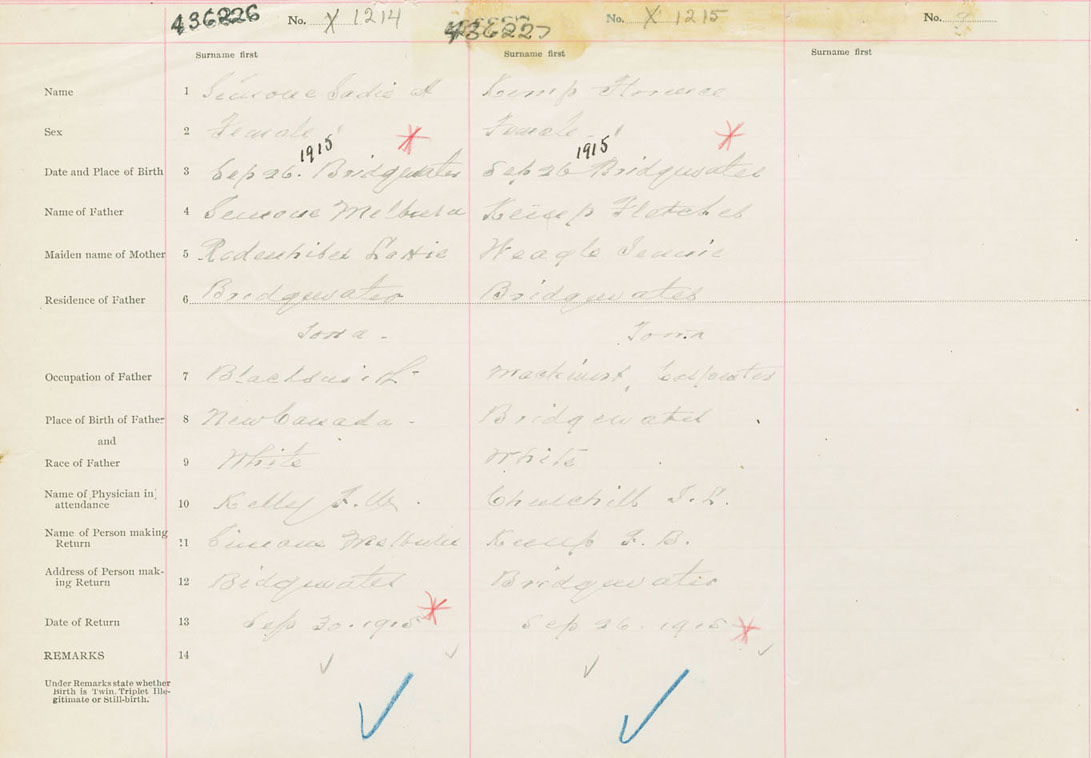 436226 No. X 1214 436227 No. X 1215 No.
Surname first Surname first Surname first
Name 1 Sadie A Kemp Florence
Sex 2 Female Female
1915 1915
Date and Place of Birth 3 Sep 26. Bridgewater Sep 26 Bridgewater
Name of Father 4 Kemp Fletcher
Maiden name of Mother 5 Rodenhiser Lottie Weagle Jennie
Residence of Father 6 Bridgewater Bridgewater
Occupation of Father 7 Blacksmith Machinist, Carpenter
Place of Birth of Father 8 New Canada - Bridgewater
and
Race of Father 9 White White
Name of Physician in
attendance 10 Kelly F. W. Churchill
Name of Person making
Return 11 Kemp F. B.
Address of Person mak-
ing Return 12 Bridgewater Bridgewater
Date of Return 13 Sep 30. 1915 Sep 26. 1915
REMARKS 14
Under Remarks state whether
Birth is Twin. Triplet Ille-
gitimate or Still-birth.